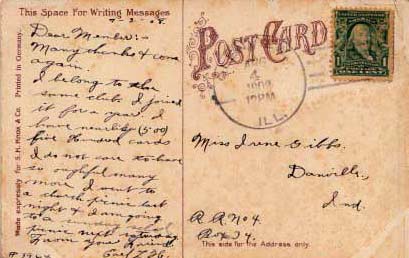 This Space For Writing Messages
8-3-08.
Dear Member:-
Many thanks & come
again.
I belong to the
same clubs I joined
it for a year I
have nearly (500)
five Hundred cards
I do not care to have
so awful many
more I went to
a church picnic last
night & I am going
to a
picnic next
From your Friend
Made expressly for S. H. Knox & Co. Printed in Germany.
POST CARD
4
1908
12PM
ILL.
1
Miss Irene Gibbs.
Danville,
Ind.
R.R. No 4.
Box 34.
This side for the Address only.